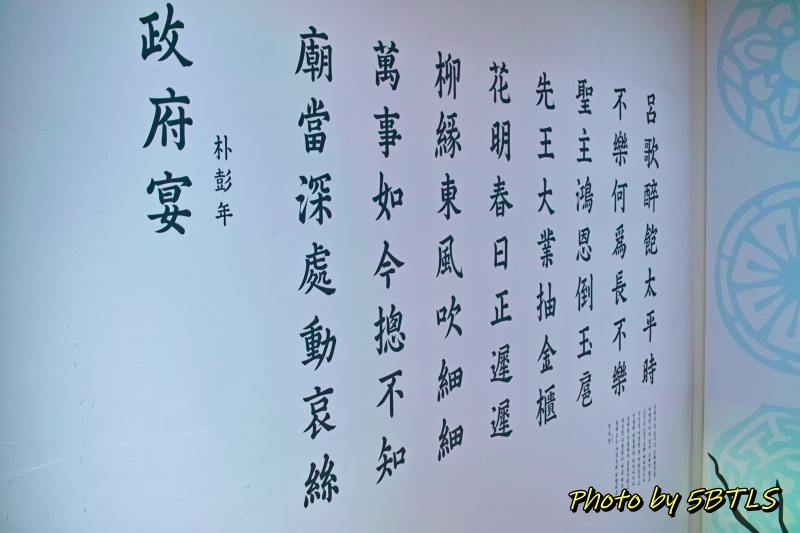 政府宴
朴彭年
廟當深處動哀絲
萬事如今摠不知
柳緣東風吹細細
花明春日正遲遲
先王大業抽金櫃
聖主鴻恩倒玉巵
不樂何爲長不樂
呂歌醉飽太平時
Photo by 5BTLS